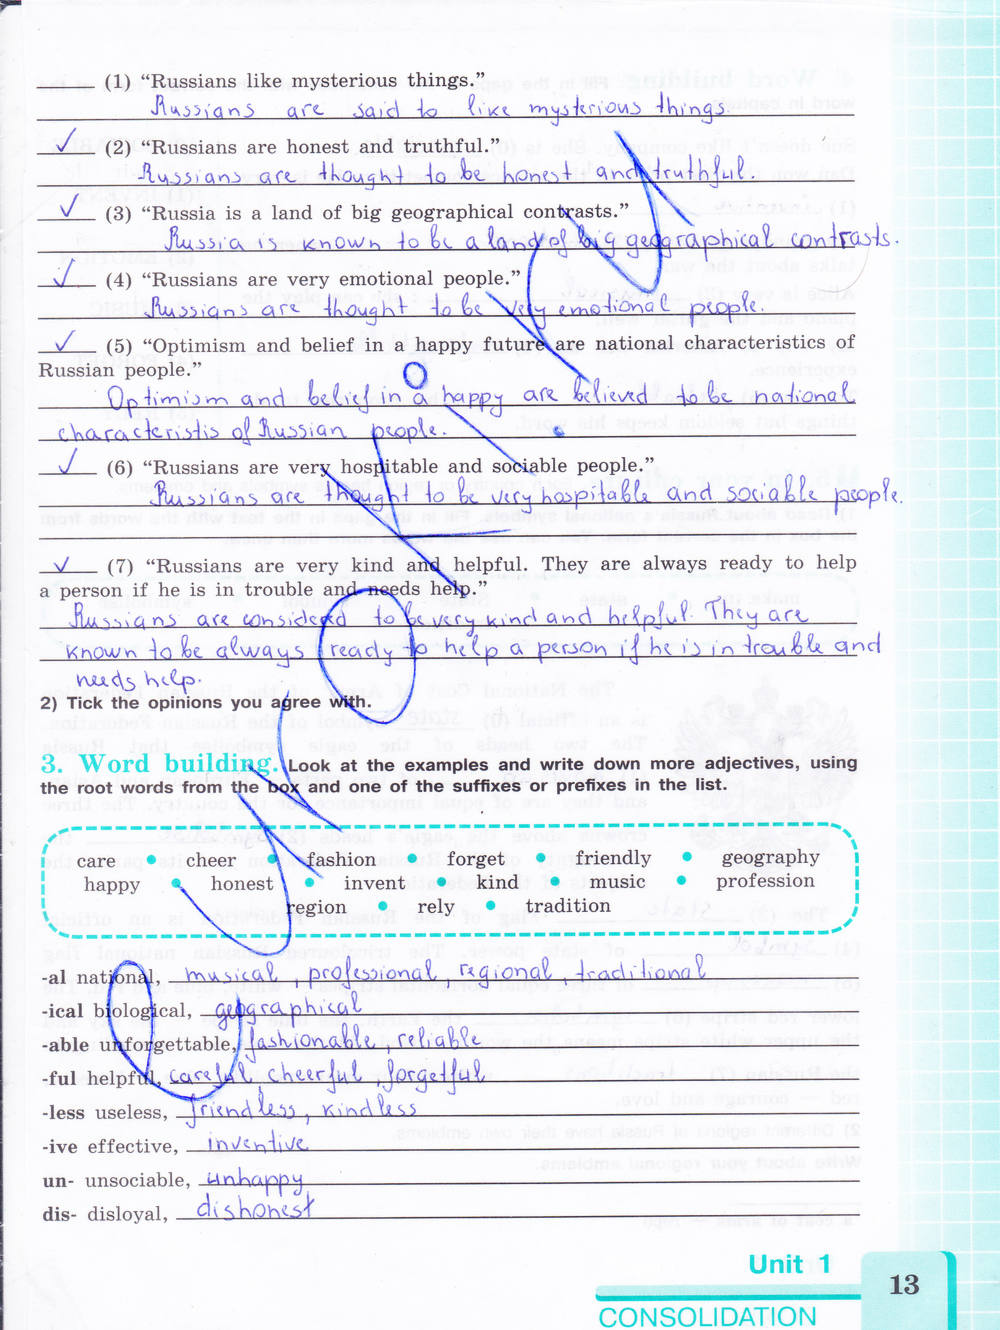 (1) “Russians like mysterious things.”
Russians are said to like mysterious things.
✓ (2) “Russians are honest and truthful.”
Russians are thought to be honest and truthful.
✓ (3) “Russia is a land of big geographical contrasts.”
Russia is known to be a land of big geographical contrasts.
✓ (4) “Russians are very emotional people.”
Russians are thought to be very emotional people.
✓ (5) “Optimism and belief in a happy future are national characteristics of
Russian people.”
Optimism and belief in a happy are believed to be national
characteristis of Russian people.
✓ (6) “Russians are very hospitable and sociable people.”
Russians are thought to be very hospitable and sociable people.
✓ (7) “Russians are very kind and helpful. They are always ready to help
a person if he is in trouble and needs help.”
Russians are considered to be very kind and helpful. They are
known to be always ready to help a person if he is in trouble and
needs help.
2) Tick the opinions you agree with.
3. Word building. Look at the examples and write down more adjectives, using
the root words from the box and one of the suffixes or prefixes in the list.
care • cheer • fashion • forget • friendly • geography
happy • honest • invent • kind • music • profession
region • rely • tradition
-al national, musical, professional, regional, traditional
-ical biological, geographical
-able unforgettable, fashionable, reliable
-ful helpful, careful, cheerful, forgetful
-less useless, friendless, kindless
-ive effective, inventive
un- unsociable, unhappy
dis- disloyal, dishonest
Unit 1
13
CONSOLIDATION